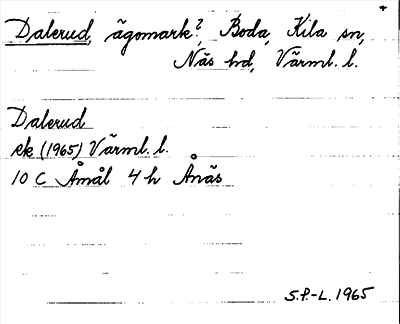 Dalerud, ägomark?, Boda, Kila sn,
Näs hd, Värml. l.
Dalerud
ek (1965) Värml. l.
10 C Åmål 4 h Ånäs
S.P.-L. 1965